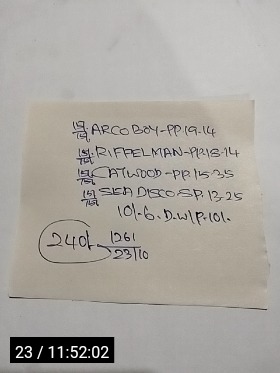 ARCO BOY-PP.19-14
RIFFELMAN-PP.15-14
CATWOOD-PP.15-35
SEA DISCO-SP.13-25
10/-6.D.W/P.10/-
240/- 1261
23/10
23 / 11:52:02